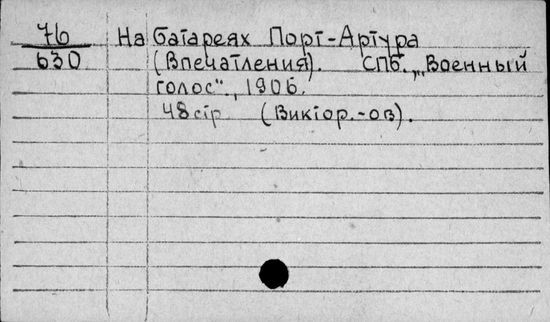 76 На батареях Порт-Артура
630 (Впечатления). СПб., „Военный
голос“., 1906.
48 стр. (Виктор.-ов).